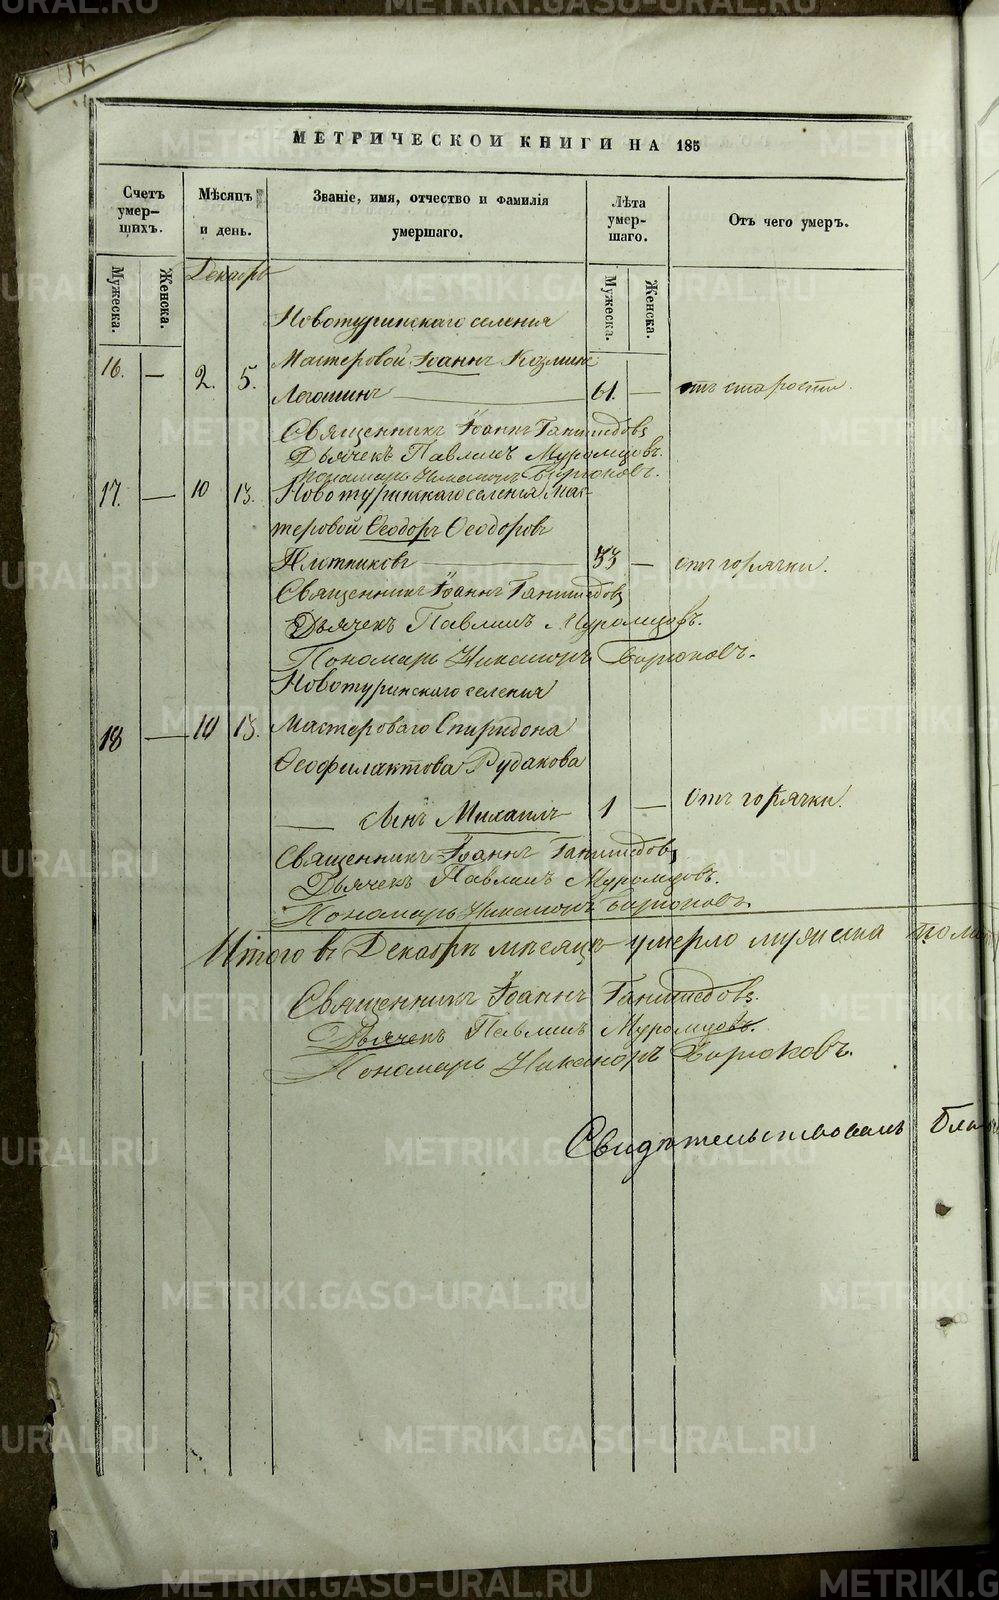 МЕТРИЧЕСКОЙ КНИГИ НА 185
Счетъ умер-шихъ.
Мужеска.
Женска.
Мѣсяцъ и день.
Званіе, имя, отчество и фамилія умершаго.
Лѣта умер-шаго.
Мужеска.
Женска.
Отъ чего умеръ.
Декабрь
Новотуринскаго селенія
16. — 2. 5. Мастеровой Іоаннъ Козминъ
Легошинъ — 61. — отъ старости.
Священникъ Іоаннъ
Дьячекъ Павлинъ Муромцовъ.
Пономарь Никаноръ Бирюковъ.
17. — 10 13. Новотуринскаго селенія Мас-
теровой Ѳеодоръ Ѳеодоровъ
Плотниковъ — 53 — отъ горячки.
Священникъ Іоаннъ
Дьячекъ Павлинъ Муромцовъ.
Пономарь Никаноръ Бирюковъ.
Новотуринскаго селенія
18 — 10 13. Мастероваго Спиридона
Ѳеофилактова Рудакова
— сынъ Михаилъ 1 — отъ горячки.
Священникъ Іоаннъ
Дьячекъ Павлинъ Муромцовъ.
Пономарь Никаноръ Бирюковъ.
Итого въ Декабрѣ мѣсяцѣ умерло мужеска пола
Священникъ Іоаннъ
Дьячекъ Павлинъ Муромцовъ.
Пономарь Никаноръ Бирюковъ.
Свидѣтельствовалъ
METRIKI.GASO-URAL.RU